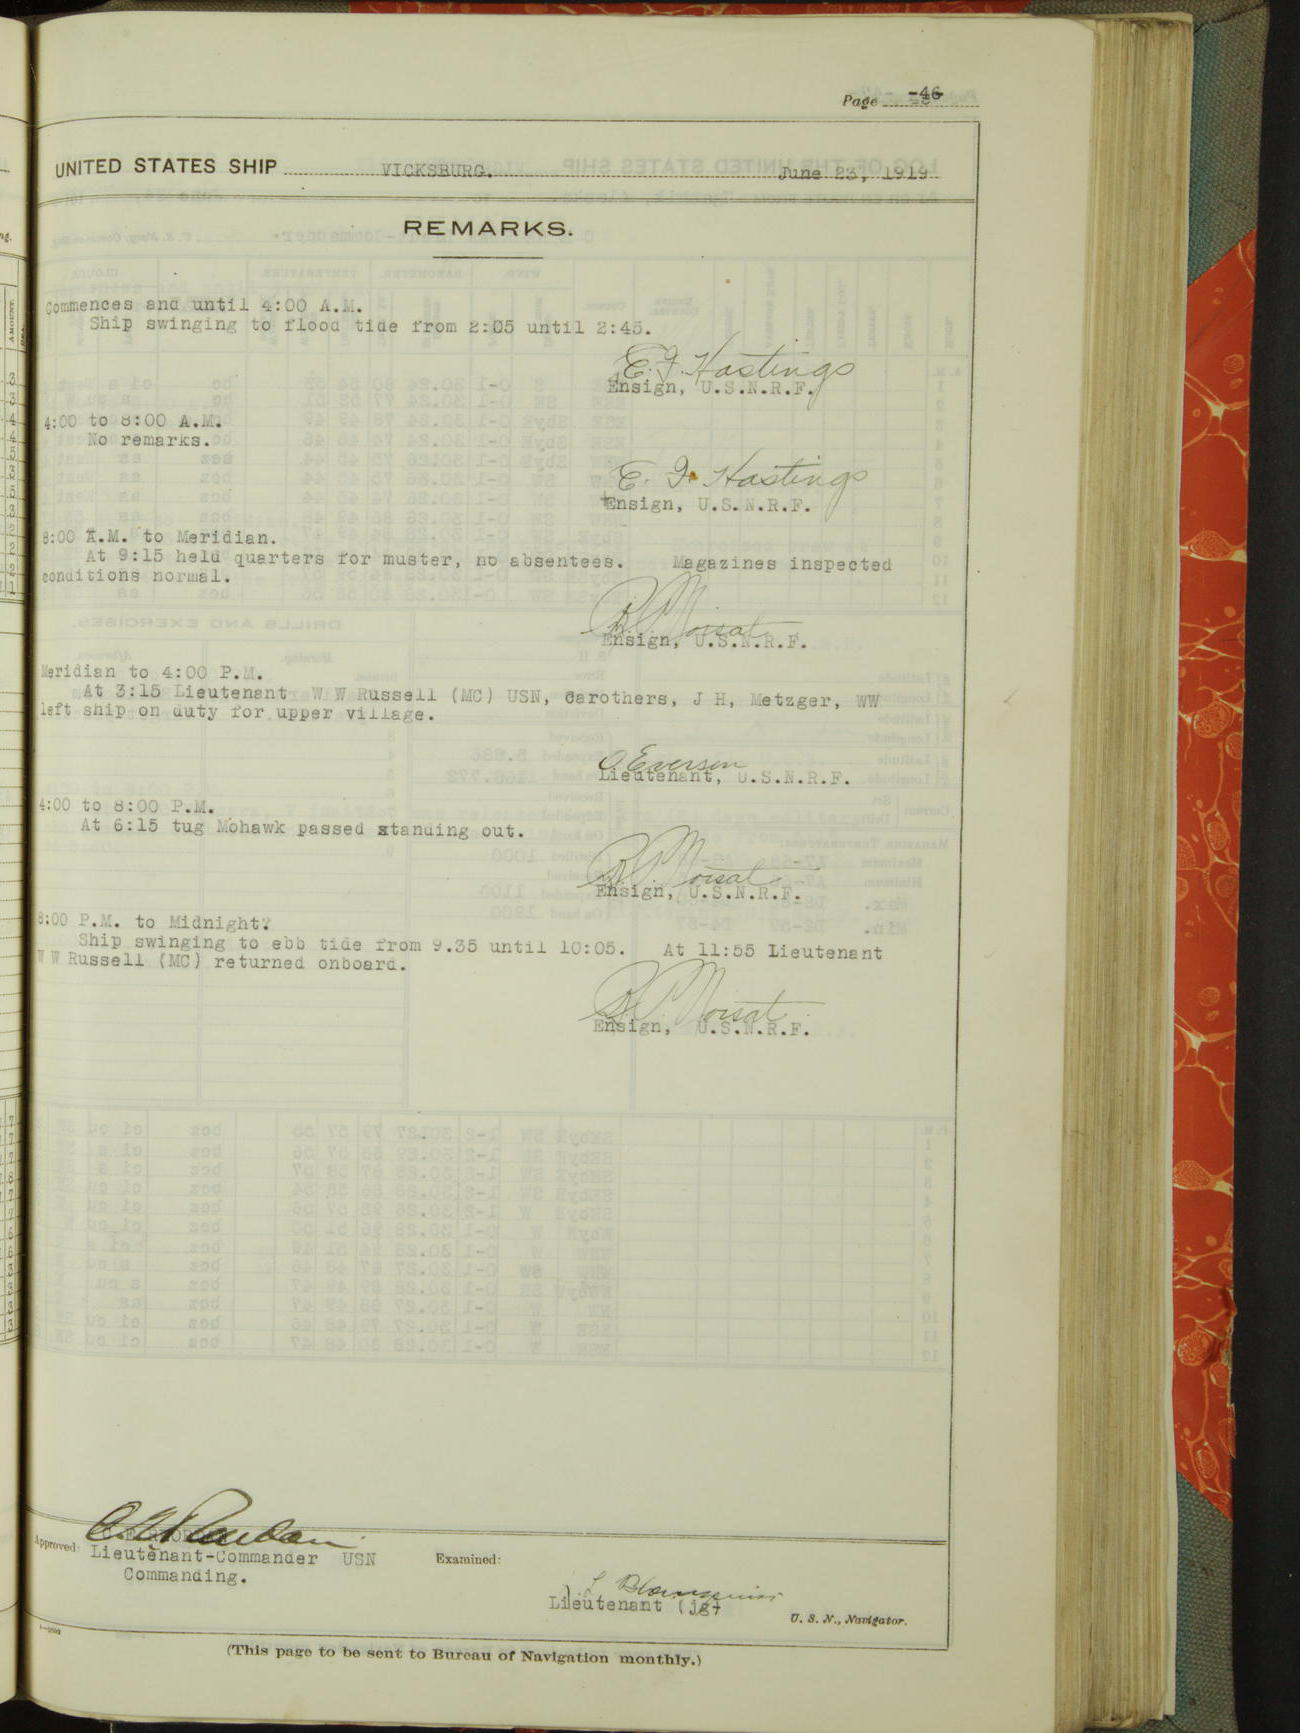 Page -46-
UNITED STATES SHIP VICKSBURG. June 23, 1919
REMARKS.
Commences and until 4:00 A.M.
Ship swinging to flood tide from 2:05 until 2:45.
E. F. Hastings
Ensign, U.S.N.R.F.
4:00 to 8:00 A.M.
No remarks.
E. F. Hastings
Ensign, U.S.N.R.F.
8:00 A.M. to Meridian.
At 9:15 held quarters for muster, no absentees. Magazines inspected
conditions normal.
Ensign, U.S.N.R.F.
Meridian to 4:00 P.M.
At 3:15 Lieutenant W W Russell (MC) USN, Carothers, J H, Metzger, WW
left ship on duty for upper village.
O Everson
Lieutenant, U.S.N.R.F.
4:00 to 8:00 P.M.
At 6:15 tug Mohawk passed standing out.
Ensign, U.S.N.R.F.
8:00 P.M. to Midnight?
Ship swinging to ebb tide from 9.35 until 10:05. At 11:55 Lieutenant
W W Russell (MC) returned onboard.
Ensign, U.S.N.R.F.
Approved:
Lieutenant-Commander USN
Commanding.
Examined:
Lieutenant (jg)
U. S. N., Navigator.
(This page to be sent to Bureau of Navigation monthly.)